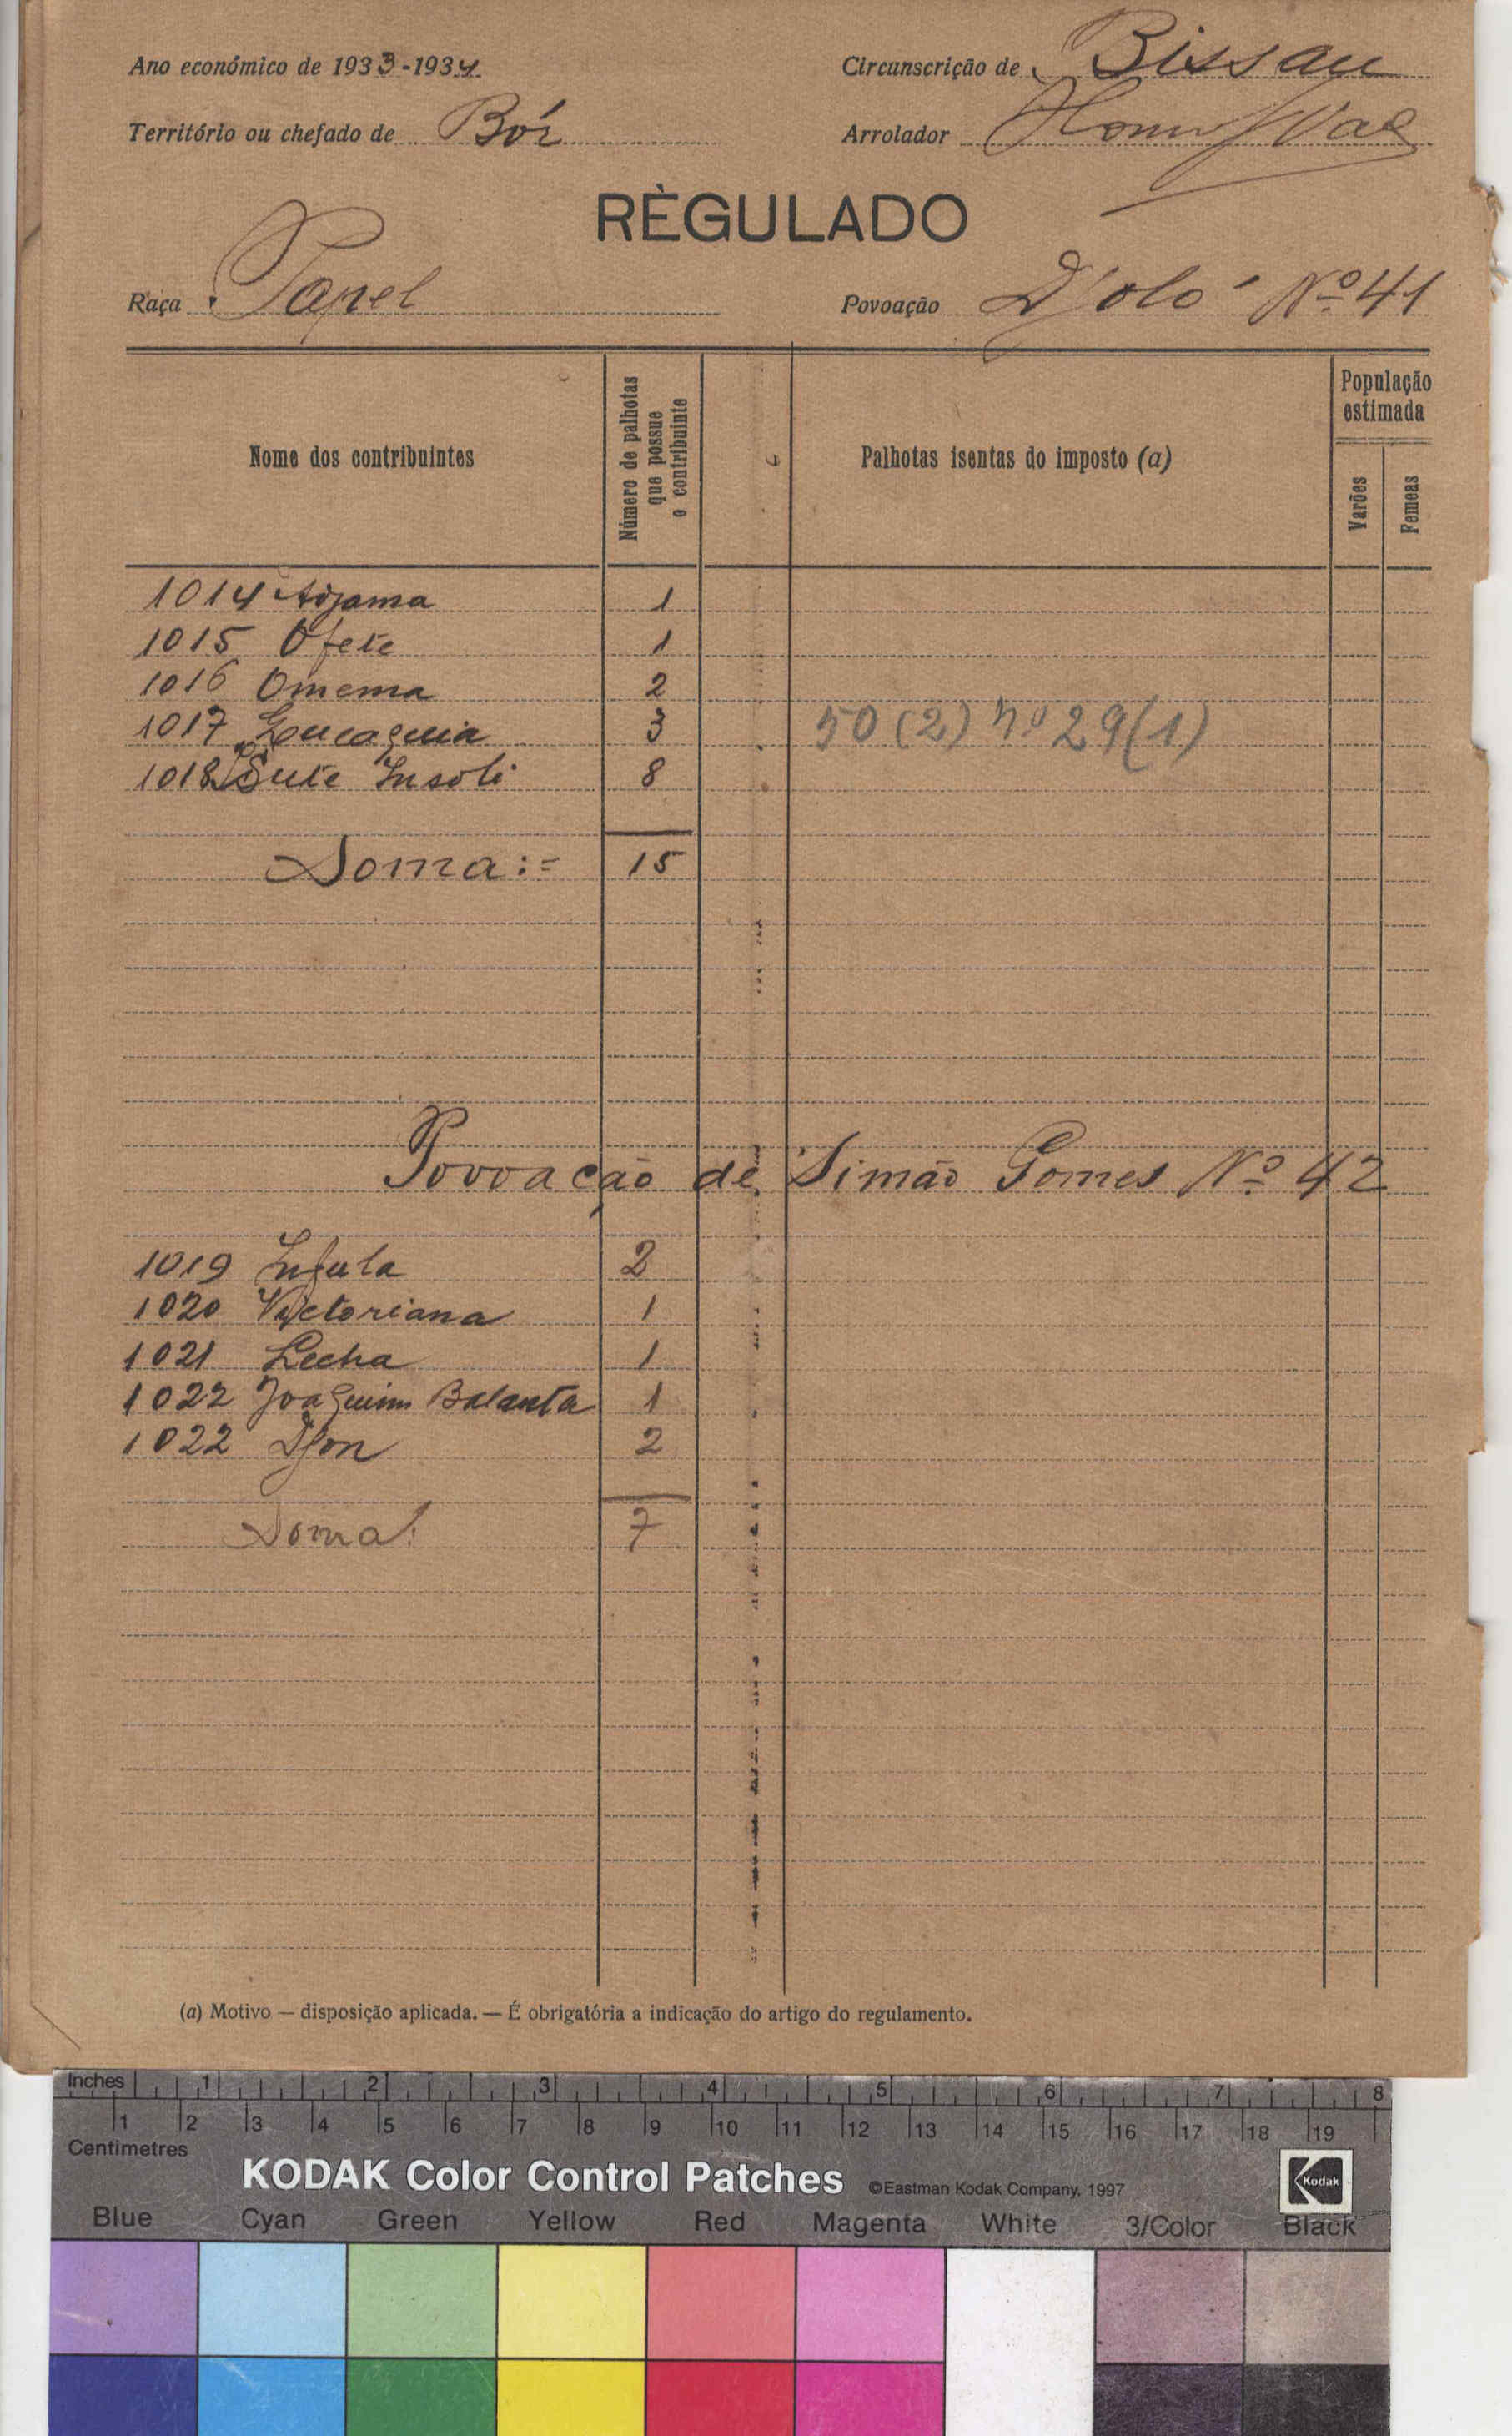 Ano económico de 1933-1934
Circunscrição de Bissau
Território ou chefado de Bór
Arrolador
RÈGULADO
Raça Papel
Povoação D'jolo' Nº 41
Nome dos contribuintes
Número de palhotas que possue o contribuinte
Palhotas isentas do imposto (a)
População estimada
Varões
Femeas
1014 Adjama 1
1015 Ofete 1
1016 Omema 2
1017 3
50 (2) nº 29 (1)
1018 Sute Insoli 8
Soma:= 15
Povoação de Simão Gomes Nº 42
1019 Infula 2
1020 Victoriana 1
1021 Lecha 1
1022 Joaquim Balanta 1
1022 Djon 2
Soma: 7
(a) Motivo — disposição aplicada. — É obrigatória a indicação do artigo do regulamento.
Inches 1 2 3 4 5 6 7 8
1 2 3 4 5 6 7 8 9 10 11 12 13 14 15 16 17 18 19
Centimetres
KODAK Color Control Patches ©Eastman Kodak Company, 1997 Kodak
Blue Cyan Green Yellow Red Magenta White 3/Color Black